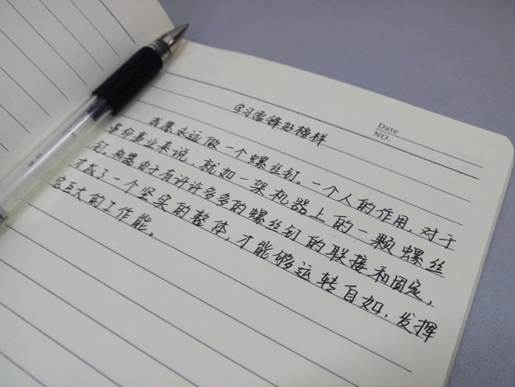 Date
NO.
学习雷锋好榜样
我愿永远做一个螺丝钉。一个人的作用,对于
革命事业来说,就如一架机器上的一颗螺丝
钉。机器由于有许许多多的螺丝钉的联接和固定,
才成了一个坚实的整体,才能够运转自如,发挥
它巨大的工作能。